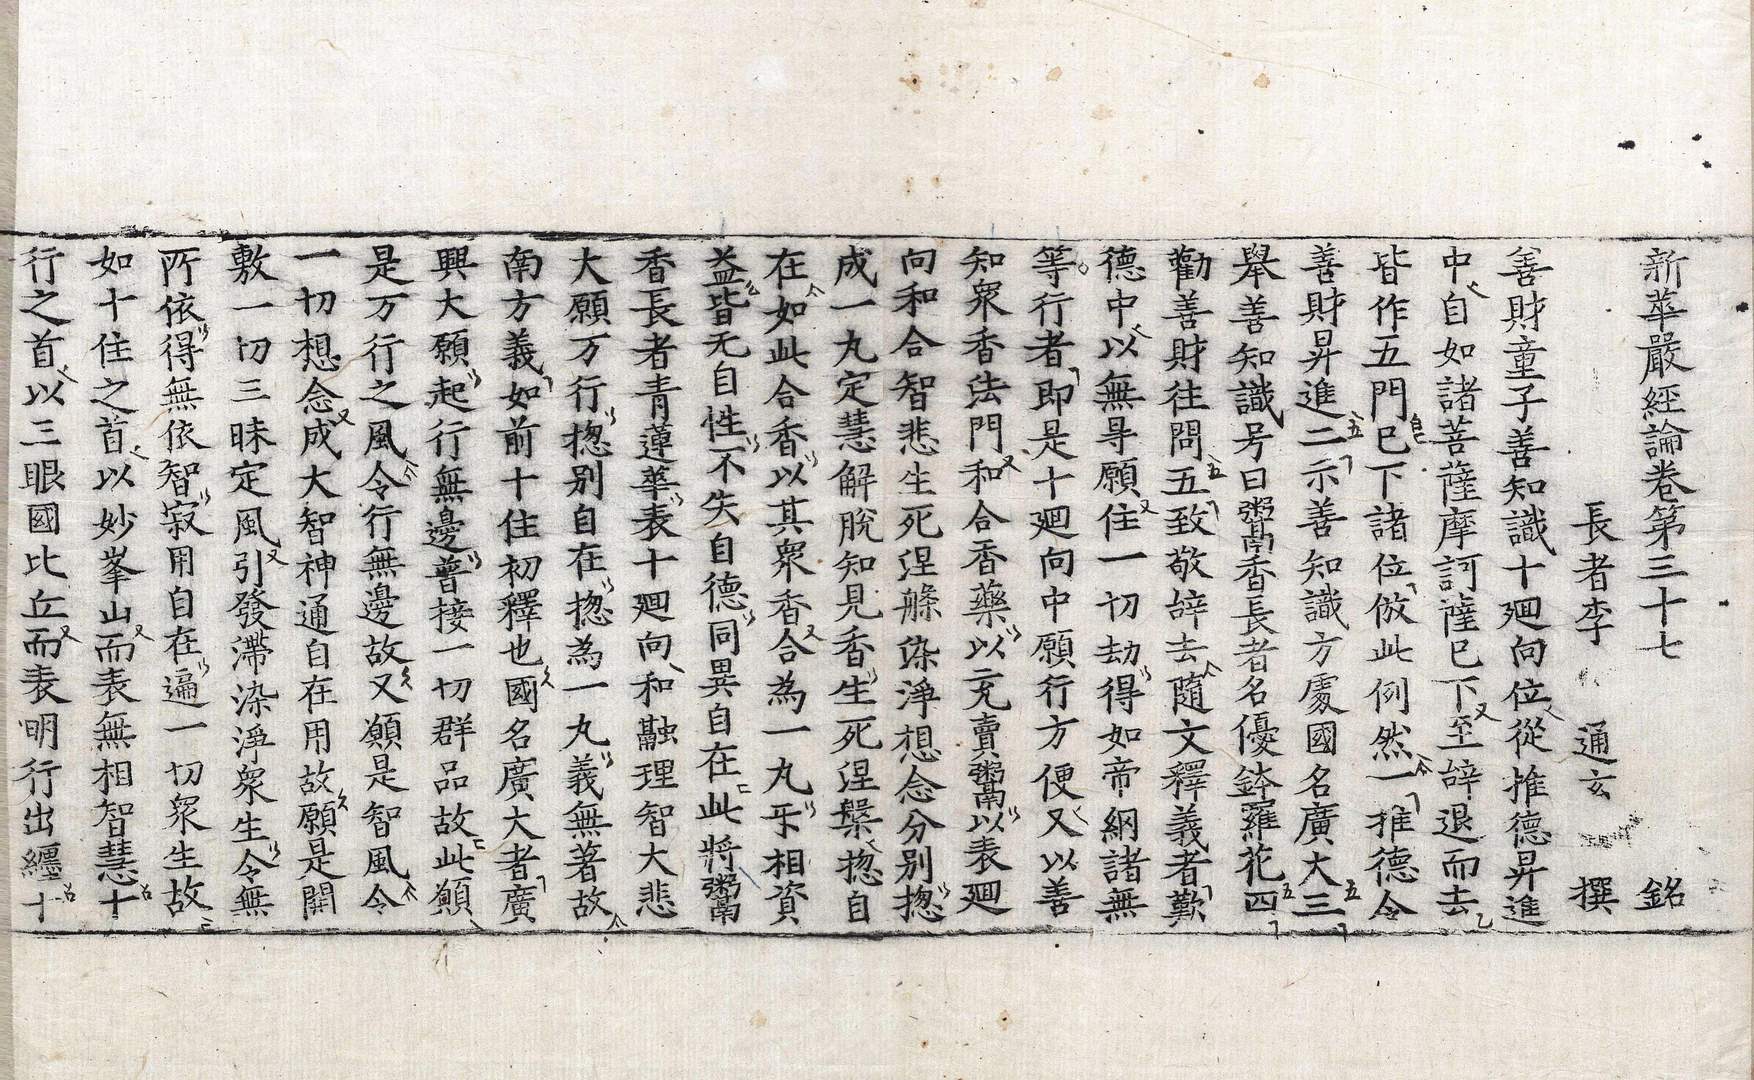 新華嚴經論卷第三十七 銘
長者李 通玄 撰
善財童子善知識十廻向位從推德昇進
中自如諸菩薩摩訶薩已下至辞退而去
皆作五門已下諸位倣此例然一推德令
善財昇進二示善知識方處國名廣大三
舉善知識号曰鬻香長者名優鉢羅花四
勸善財往問五致敬辞去隨文釋義者歎
德中以無㝵願住一切劫得如帝網諸無
等行者即是十廻向中願行方便又以善
知衆香法門和合香藥以充賣鬻以表廻
向和合智悲生死涅槃染淨想念分別揔
成一丸定慧解脫知見香生死涅槃揔自
在如此合香以其衆香合為一丸乎相資
益皆无自性不失自德同異自在此將鬻
香長者青蓮華表十廻向和融理智大悲
大願万行揔别自在揔為一丸義無著故
南方義如前十住初釋也國名廣大者廣
興大願起行無邊普接一切群品故此願
是万行之風令行無邊故又願是智風令
一切想念成大智神通自在用故願是開
敷一切三昧定風引發滯染淨衆生令無
所依得無依智寂用自在遍一切衆生故
如十住之首以妙峯山而表無相智慧十
行之首以三眼國比丘而表明行出纏十